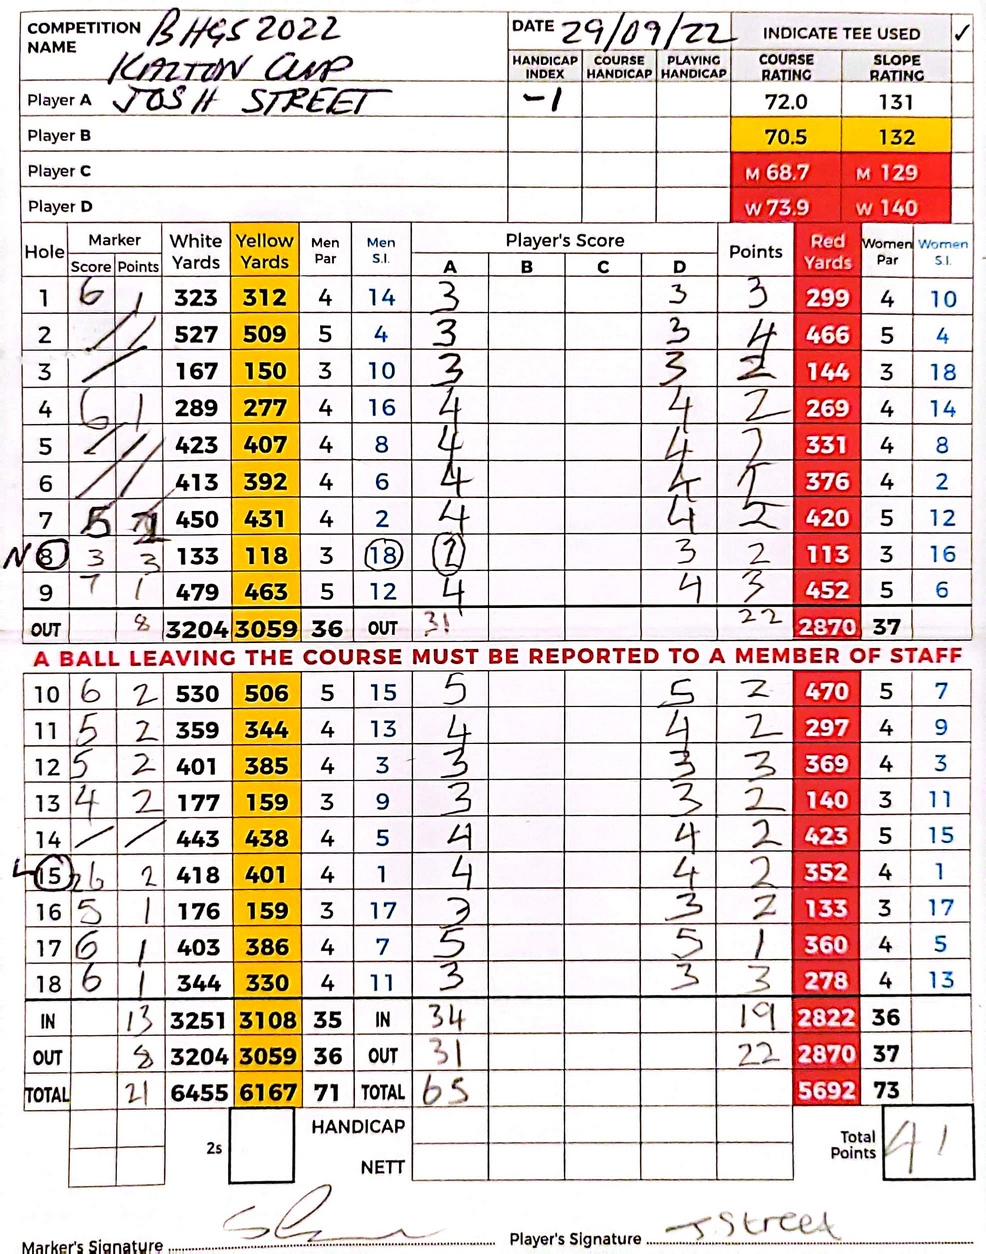 COMPETITION NAME BHGS 2022 KALTON CUP DATE 29/09/22 INDICATE TEE USED ✓
HANDICAP INDEX COURSE HANDICAP PLAYING HANDICAP COURSE RATING SLOPE RATING
Player A JOSH STREET -1 72.0 131
Player B 70.5 132
Player C M 68.7 M 129
Player D W 73.9 W 140
Hole Marker White Yards Yellow Yards Men Par Men S.I. Player's Score Points Red Yards Women Par Women S.I.
Score Points A B C D
1 6 1 323 312 4 14 3 3 3 299 4 10
2 / / 527 509 5 4 3 3 4 466 5 4
3 / 167 150 3 10 3 3 2 144 3 18
4 6 1 289 277 4 16 4 4 2 269 4 14
5 / / 423 407 4 8 4 4 2 331 4 8
6 / / 413 392 4 6 4 4 376 4 2
7 5 2 450 431 4 2 4 4 2 420 5 12
N 8 3 3 133 118 3 18 2 3 2 113 3 16
9 7 1 479 463 5 12 4 4 3 452 5 6
OUT 8 3204 3059 36 OUT 31 22 2870 37
A BALL LEAVING THE COURSE MUST BE REPORTED TO A MEMBER OF STAFF
10 6 2 530 506 5 15 5 5 2 470 5 7
11 5 2 359 344 4 13 4 4 2 297 4 9
12 5 2 401 385 4 3 3 3 3 369 4 3
13 4 2 177 159 3 9 3 3 2 140 3 11
14 / / 443 438 4 5 4 4 2 423 5 15
L 15 6 2 418 401 4 1 4 4 2 352 4 1
16 5 1 176 159 3 17 3 3 2 133 3 17
17 6 1 403 386 4 7 5 5 1 360 4 5
18 6 1 344 330 4 11 3 3 3 278 4 13
IN 13 3251 3108 35 IN 34 19 2822 36
OUT 8 3204 3059 36 OUT 31 22 2870 37
TOTAL 21 6455 6167 71 TOTAL 65 5692 73
2s HANDICAP Total Points 41
NETT
Marker's Signature Player's Signature J.Street